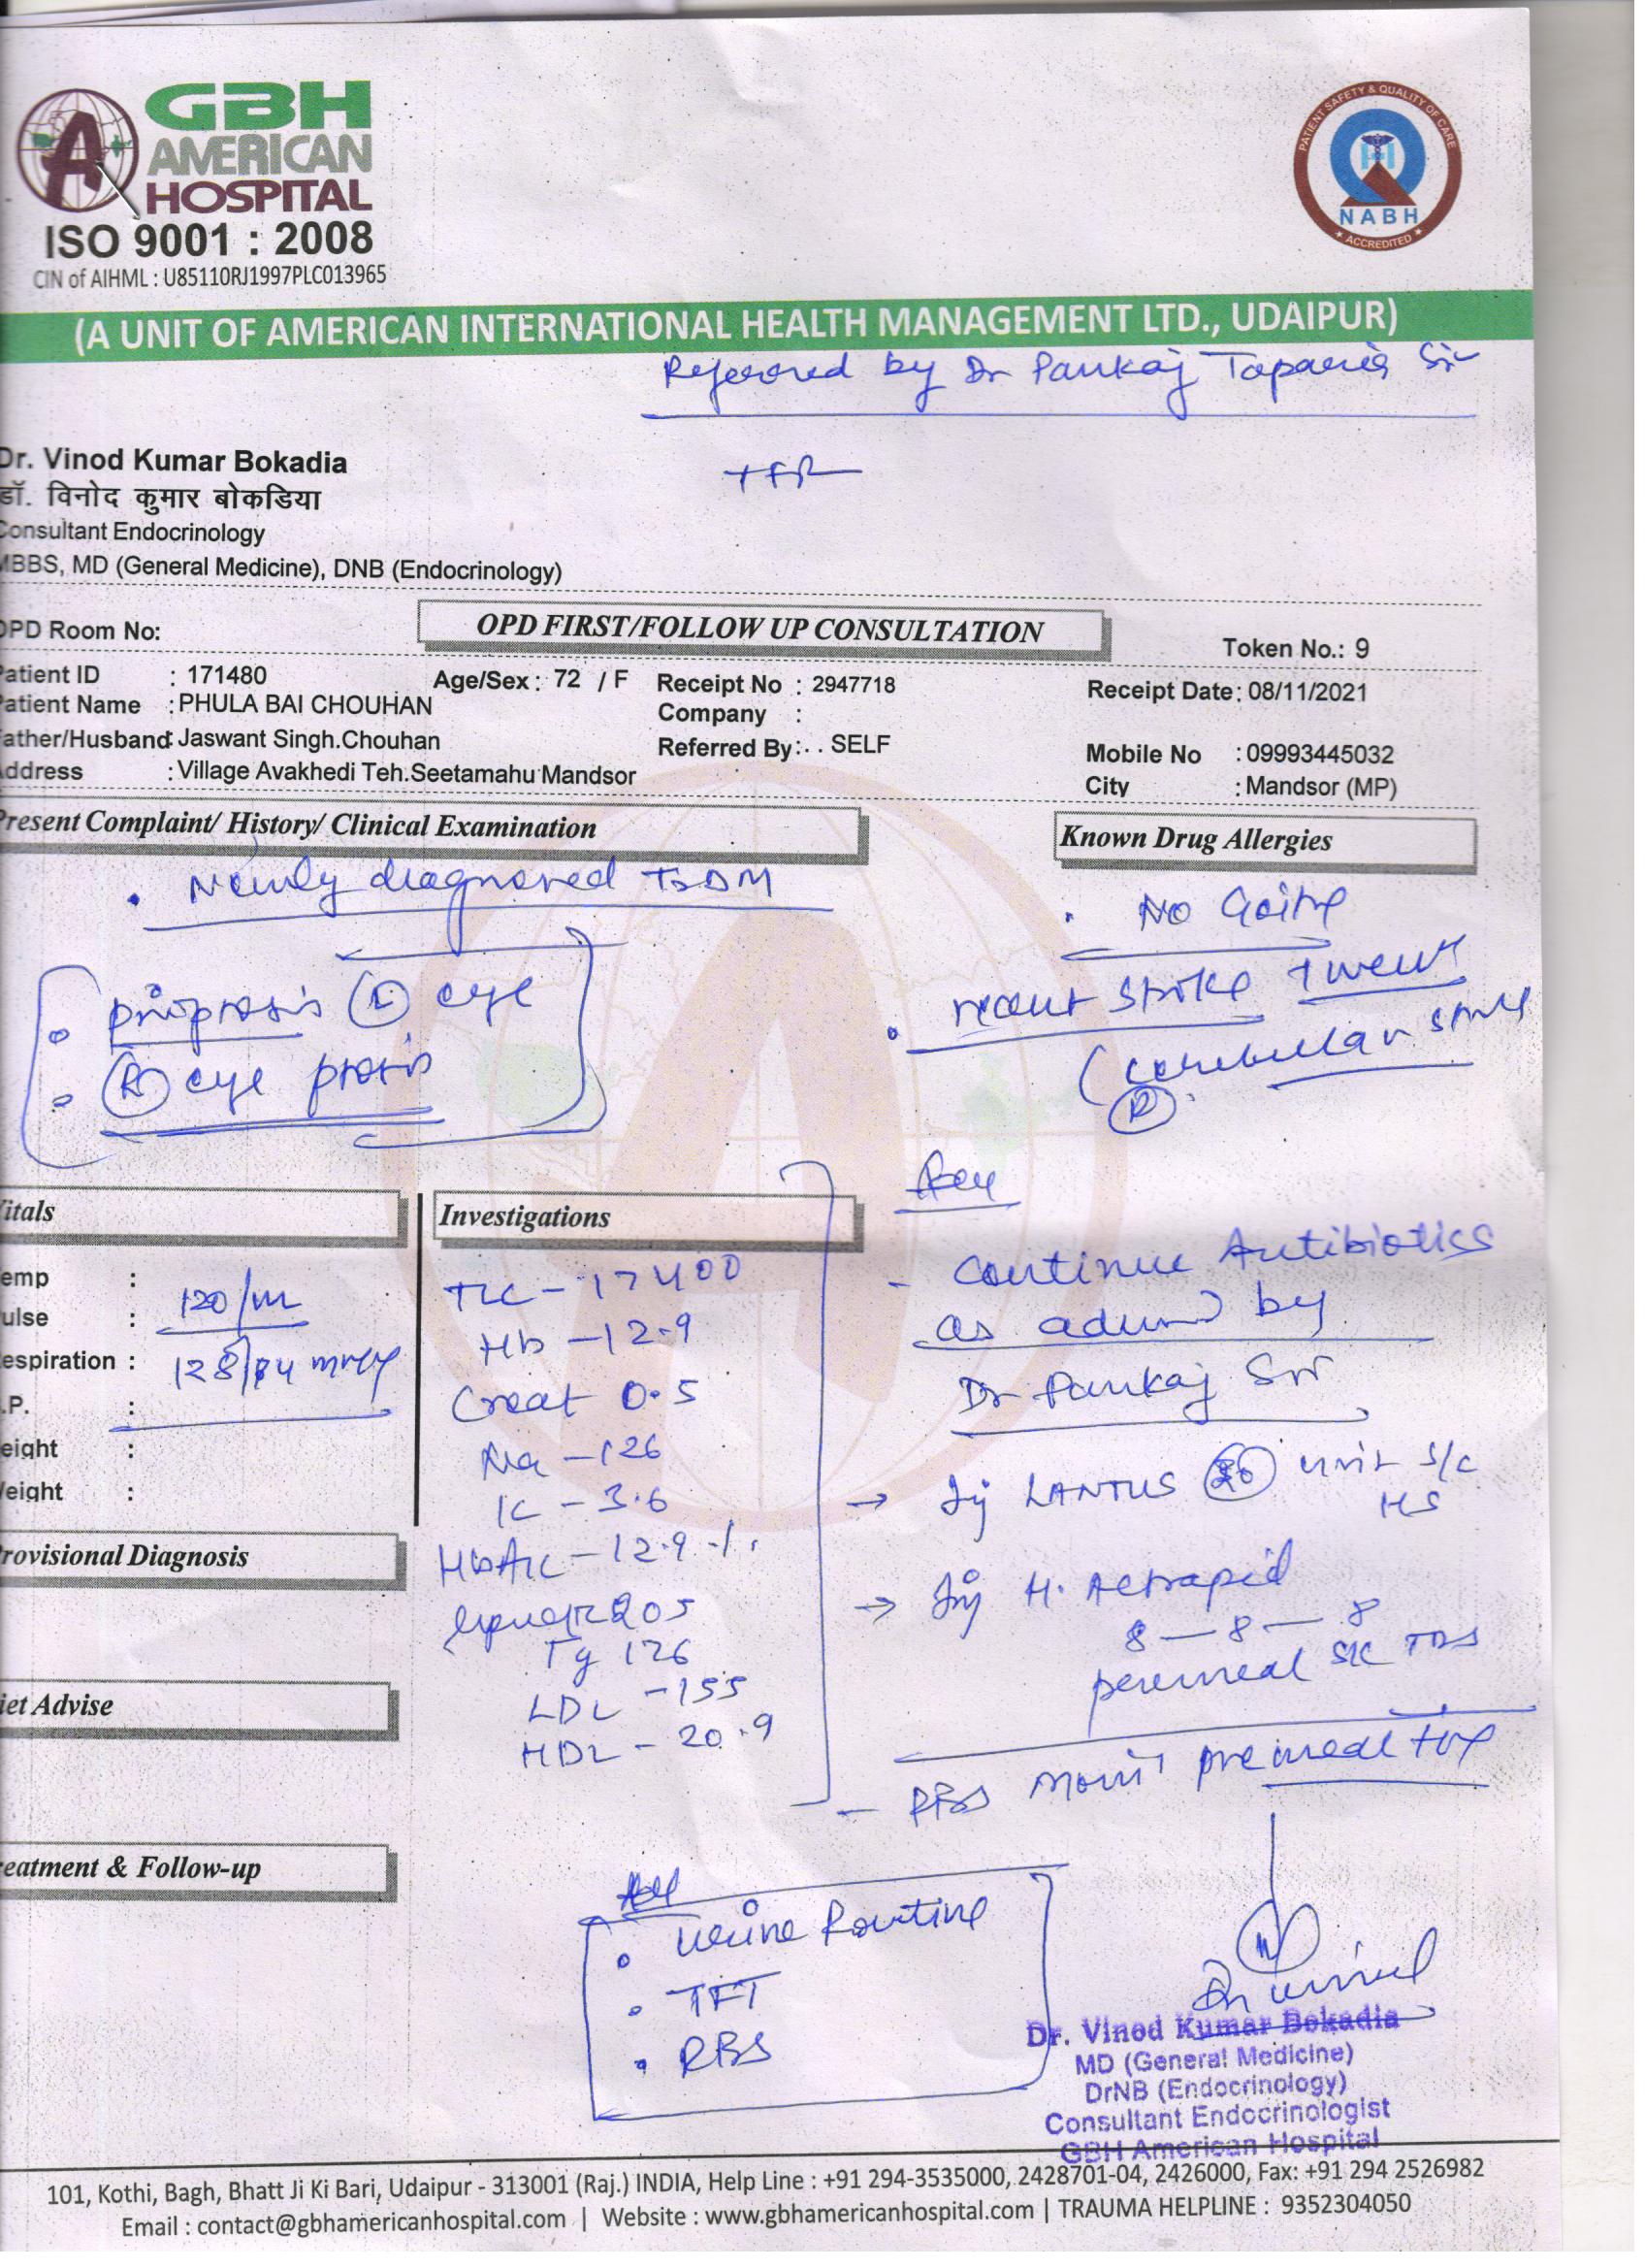 GBH
AMERICAN
HOSPITAL
ISO 9001 : 2008
CIN of AIHML : U85110RJ1997PLC013965
PATIENT SAFETY & QUALITY OF CARE
NABH
ACCREDITED
(A UNIT OF AMERICAN INTERNATIONAL HEALTH MANAGEMENT LTD., UDAIPUR)
Referred by Dr Pankaj Taparia Sir
Dr. Vinod Kumar Bokadia
डॉ. विनोद कुमार बोकडिया
Consultant Endocrinology
MBBS, MD (General Medicine), DNB (Endocrinology)
OPD FIRST/FOLLOW UP CONSULTATION
OPD Room No:
Token No.: 9
Patient ID : 171480 Age/Sex : 72 / F Receipt No : 2947718 Receipt Date: 08/11/2021
Patient Name : PHULA BAI CHOUHAN Company :
Father/Husband: Jaswant Singh.Chouhan Referred By:. . SELF Mobile No : 09993445032
Address : Village Avakhedi Teh.Seetamahu Mandsor City : Mandsor (MP)
Present Complaint/ History/ Clinical Examination
Known Drug Allergies
• Newly diagnosed T2DM
• No Goitre
proptosis (L) eye
(R) eye ptosis
• recent stroke 1 week
(cerebellar stroke
(R)
Vitals
Investigations
Temp :
Pulse : 120/m
Respiration : 128/84 mmHg
B.P. :
Height :
Weight :
TLC - 17400
Hb - 12.9
Creat 0.5
Na - 126
K - 3.6
HbA1c - 12.9 %
205
Tg 126
LDL - 155
HDL - 20.9
Adv
- Continue Antibiotics
as advised by
Dr Pankaj Sir
→ Inj LANTUS unit s/c
HS
→ Inj H. Actrapid
8 — 8 — 8
premeal S/C TDS
- RBS monit premeal
Provisional Diagnosis
Diet Advise
Treatment & Follow-up
Adv
• Urine Routine
• TFT
• RBS
Dr. Vinod Kumar Bokadia
MD (General Medicine)
DrNB (Endocrinology)
Consultant Endocrinologist
GBH American Hospital
101, Kothi, Bagh, Bhatt Ji Ki Bari, Udaipur - 313001 (Raj.) INDIA, Help Line : +91 294-3535000, 2428701-04, 2426000, Fax: +91 294 2526982
Email : contact@gbhamericanhospital.com | Website : www.gbhamericanhospital.com | TRAUMA HELPLINE : 9352304050